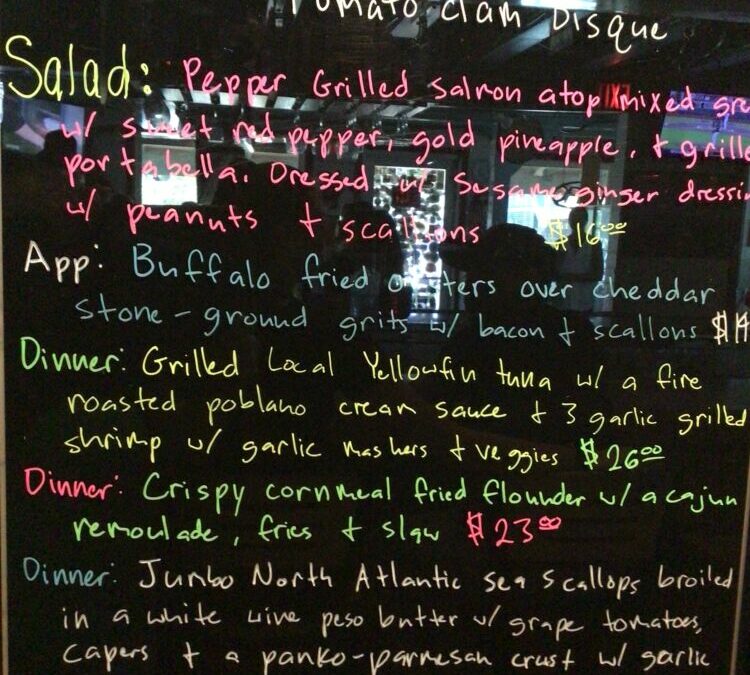 Tomato Clam Bisque
Salad: Pepper Grilled Salmon atop mixed gre
w/ sweet red pepper, gold pineapple, + grille
portabella. Dressed w/ Sesame ginger dressin
w/ peanuts + scallions $16.00
App: Buffalo fried oysters over cheddar
stone-ground grits w/ bacon + scallons
Dinner: Grilled Local Yellowfin tuna w/ a fire
roasted poblano cream sauce + 3 garlic grilled
shrimp w/ garlic mashers + veggies $26.00
Dinner: Crispy cornmeal fried flounder w/ a cajun
remoulade, fries + slaw $23.00
Dinner: Jumbo North Atlantic sea scallops broiled
in a white wine peso butter w/ grape tomatoes,
capers + a panko-parmesan crust w/ garlic